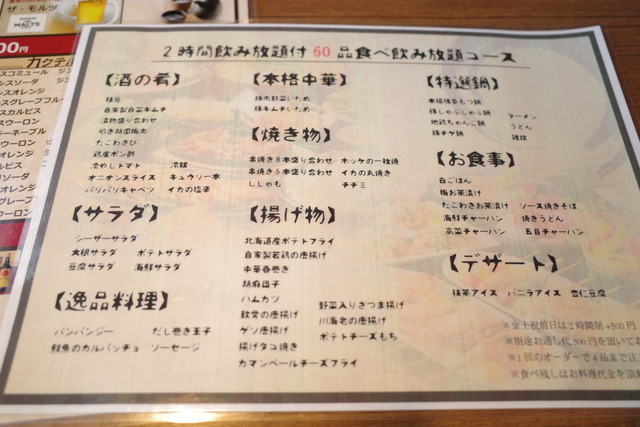 ザ・モルツ
MALT'S
00円
カクテル
2時間飲み放題付60品食べ飲み放題コース
【酒の肴】
枝豆
自家製白菜キムチ
漬物盛り合わせ
叩き胡瓜梅肉
たこわさび
鶏皮ポン酢
冷やしトマト 冷奴
オニオンスライス キュウリ一本
パリパリキャベツ イカの塩辛
【サラダ】
シーザーサラダ
大根サラダ ポテトサラダ
豆腐サラダ 海鮮サラダ
【逸品料理】
バンバンジー だし巻き玉子
鮮魚のカルパッチョ ソーセージ
【本格中華】
豚肉野菜いため
豚キムチいため
【焼き物】
串焼き8本盛り合わせ ホッケの一枚焼
串焼き5本盛り合わせ イカの丸焼き
ししゃも チヂミ
【揚げ物】
北海道産ポテトフライ
自家製若鶏の唐揚げ
中華春巻き
胡麻団子
ハムカツ 野菜入りさつま揚げ
軟骨の唐揚げ 川海老の唐揚げ
ゲソ唐揚げ ポテトチーズもち
揚げタコ焼き
カマンベールチーズフライ
【特選鍋】
本格博多もつ鍋
豚しゃぶしゃぶ鍋 ラーメン
地鶏ちゃんこ鍋 うどん
豚チゲ鍋 雑炊
【お食事】
白ごはん
梅お茶漬け
たこわさお茶漬け ソース焼きそば
海鮮チャーハン 焼きうどん
高菜チャーハン 五目チャーハン
【デザート】
抹茶アイス バニラアイス 杏仁豆腐
※金土祝前日は2時間制+500円
※別途お通し代300円を頂いてお
※1回のオーダーで4品まで注
※食べ残しはお料理代金を頂